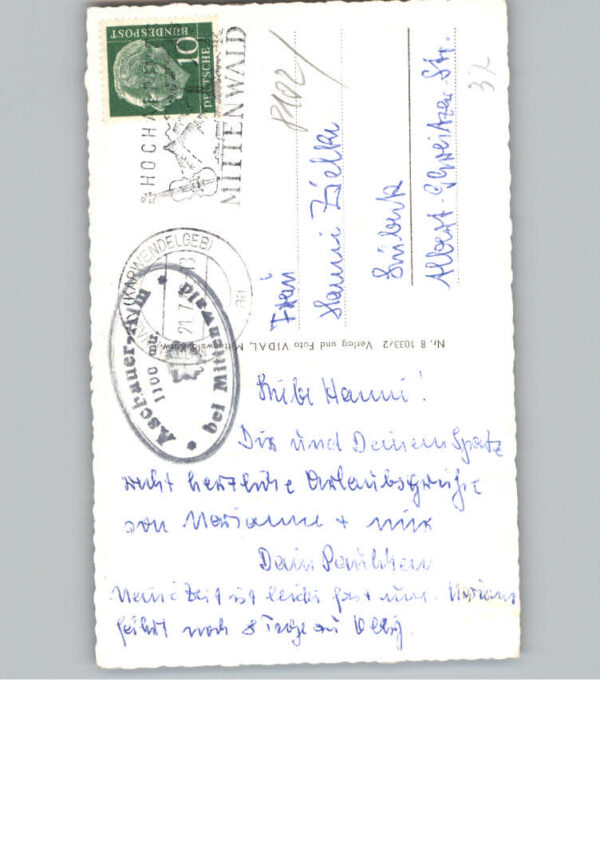 DEUTSCHE
BUNDESPOST
10
MITTENWALD
(KARWENDELGEB)
Aschauer-Alm
1100 mtr.
bei Mittenwald
8102
32
Frau
Hanni
Lübeck
Albert-Schweitzer Str.
Nr. 8 1033/2 Verlag und Foto VIDAL, Mittenwald/Karw.
Liebe Hanni!
Dir und Deinem Spatz
recht herzliche Urlaubsgrüße
von Marianne + mir
Dein Paulchen
Meine Zeit ist leider fast um.
fährt noch 8 Tage zu